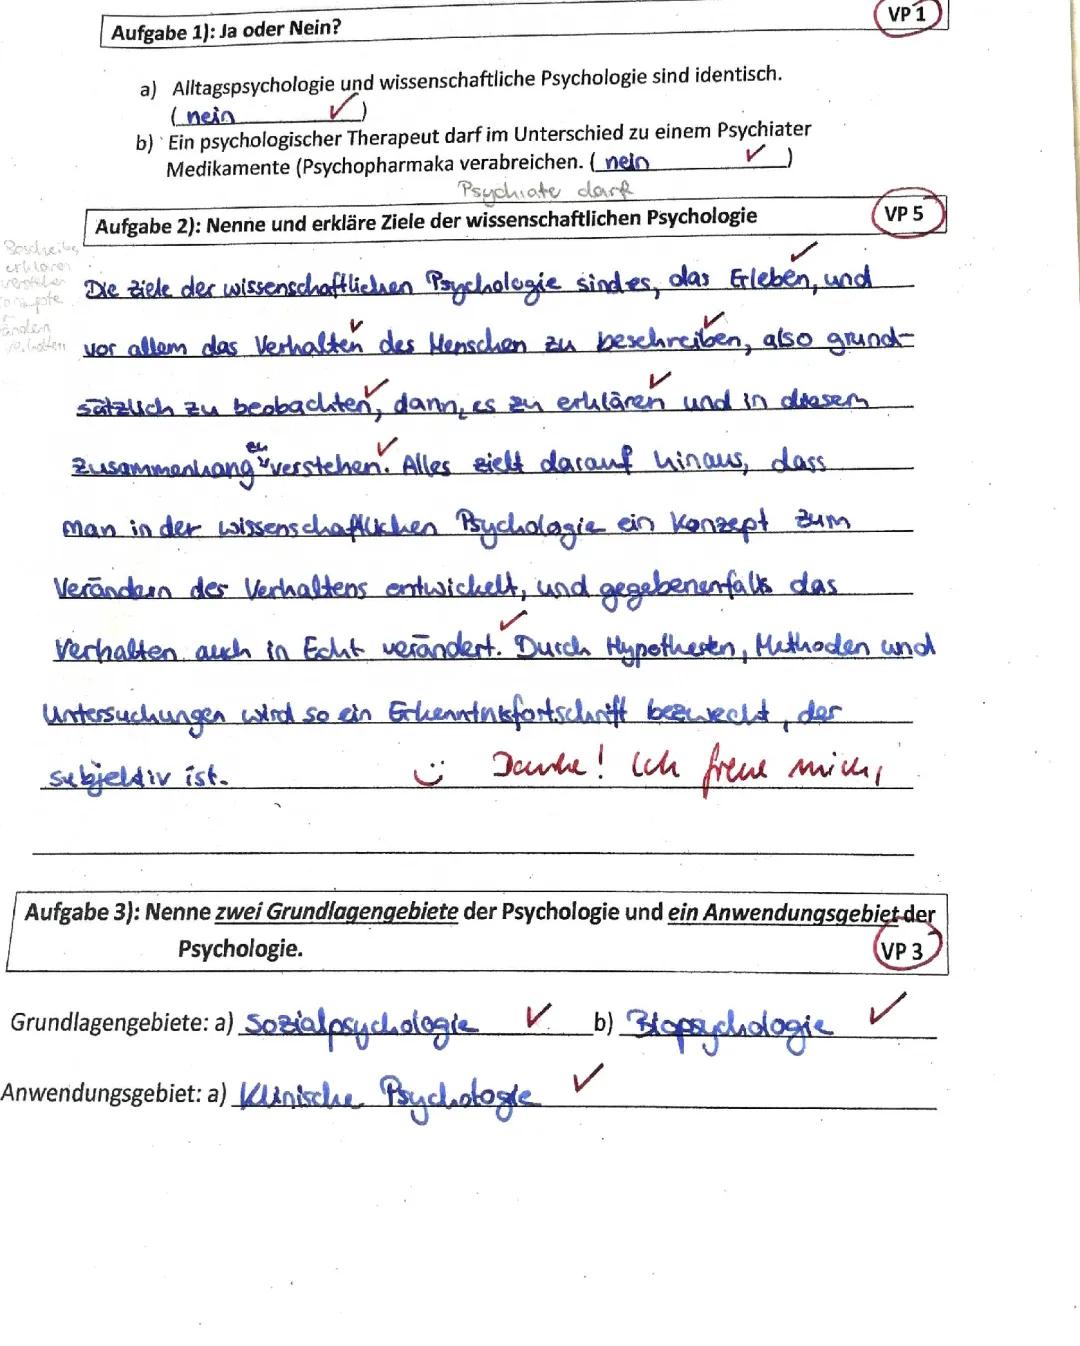 VP 1
Aufgabe 1): Ja oder Nein?
a) Alltagspsychologie und wissenschaftliche Psychologie sind identisch.
( nein )
b) Ein psychologischer Therapeut darf im Unterschied zu einem Psychiater
Medikamente (Psychopharmaka verabreichen. ( nein )
Psychiate darf
Aufgabe 2): Nenne und erkläre Ziele der wissenschaftlichen Psychologie
VP 5
Beschreiben
erklären
verstehen
Die Ziele der wissenschaftlichen Psychologie sind es, das Erleben, und
vor allem das Verhalten des Menschen zu beschreiben, also grund-
sätzlich zu beobachten, dann, es zu erklären und in diesem
Zusammenhang zu verstehen. Alles zielt darauf hinaus, dass
man in der wissenschaftlichen Psychologie ein Konzept zum
Verändern des Verhaltens entwickelt, und gegebenenfalls das
Verhalten auch in Echt verändert. Durch Hypothesen, Methoden und
Untersuchungen wird so ein Erkenntnisfortschritt bezweckt, der
subjektiv ist.
Danke! Ich freue mich,
Aufgabe 3): Nenne zwei Grundlagengebiete der Psychologie und ein Anwendungsgebiet der
Psychologie.
VP 3
Grundlagengebiete: a) Sozialpsychologie b) Biopsychologie
Anwendungsgebiet: a) Klinische Psychologie